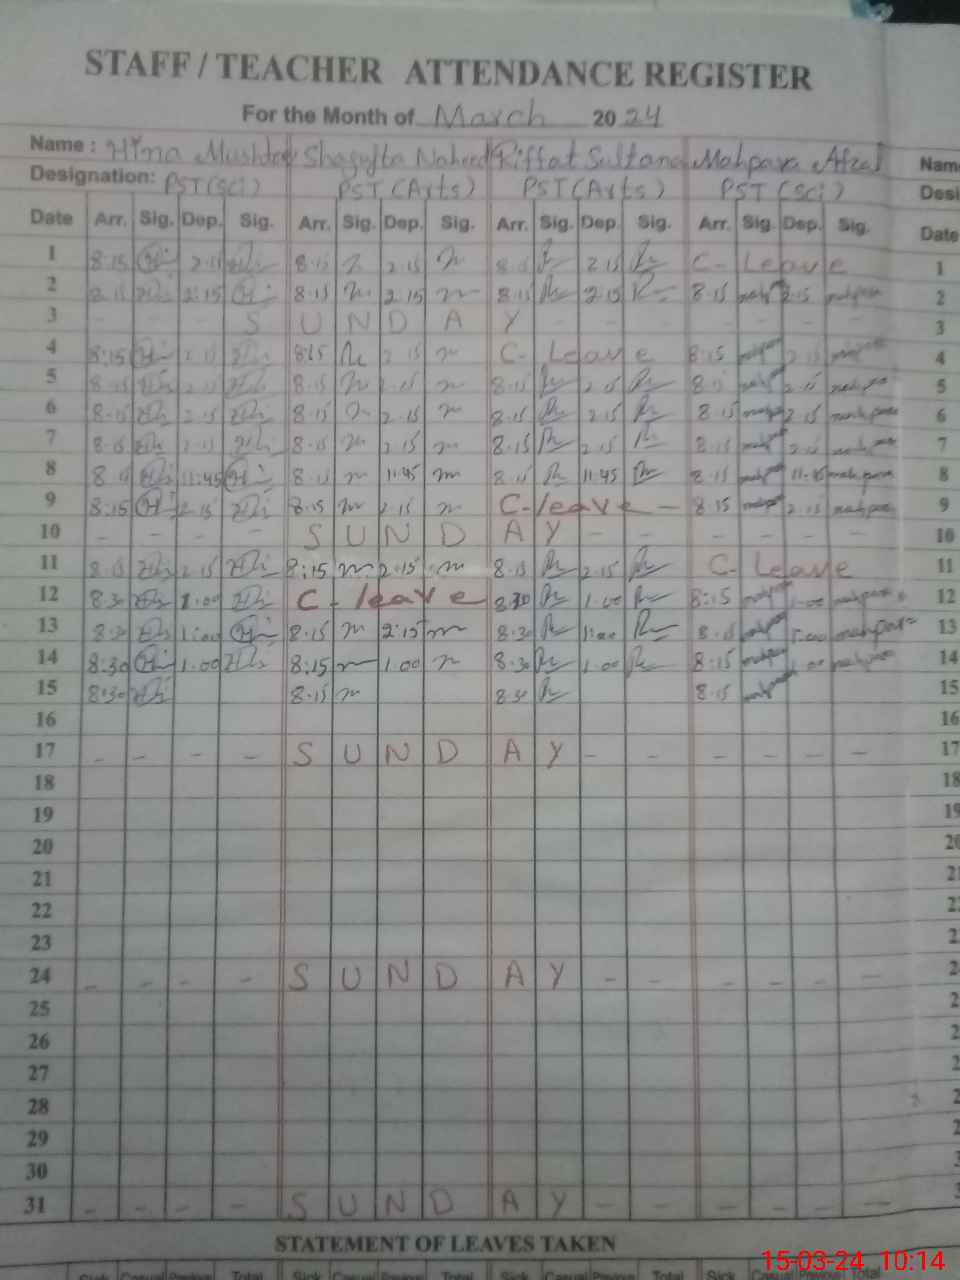 STAFF / TEACHER ATTENDANCE REGISTER
For the Month of March 2024
Name : Hina Mushtaq Shagufta Naheed Riffat Sultana Mahpara Afzal Name
Designation: PST(Sci) PST (Arts) PST (Arts) PST (Sci) Desi
Date Arr. Sig. Dep. Sig. Arr. Sig. Dep. Sig. Arr. Sig. Dep. Sig. Arr. Sig. Dep. Sig. Date
1 8.15 2.15 8.15 2.15 8.15 2.15 C- Leave 1
2 2:15 8.15 2.15 8.15 2.15 8.15 2.15 2
3 - - - S U N D A Y - - - - - - 3
4 8:15 2.15 8:15 2.15 C- Leave 8:15 2.15 4
5 8.15 2.15 8.15 2.15 8.15 2.15 8.15 2.15 5
6 8.15 2.15 8.15 2.15 8.15 2.15 8.15 2.15 6
7 8.15 2.15 8.15 2.15 8.15 2.15 8.15 2.15 7
8 8.15 11:45 8.15 11.45 8.15 11.45 8.15 11.45 8
9 8:15 2.15 8.15 2.15 C-leave - 8.15 2.15 9
10 - - - - S U N D A Y - - - - - - 10
11 8.15 2.15 8:15 2.15 8.15 2.15 C- Leave 11
12 8.30 1.00 C - leave 8.30 1.00 8:15 1.00 12
13 8.30 1:00 8.15 2:15 8.30 1:00 8.15 1.00 13
14 8:30 1.00 8:15 1.00 8.30 1.00 8:15 1.00 14
15 8:30 8.15 8.30 8.15 15
16 16
17 - - - - S U N D A Y - - - - - - 17
18 18
19 19
20 20
21 21
22 22
23 2
24 - - - - S U N D A Y - - - - - - 2
25 2
26 2
27 2
28 2
29 2
30 3
31 - - - - S U N D A Y - - - - - - 3
STATEMENT OF LEAVES TAKEN
Sick Casual Previous Total Sick Casual Previous Total Sick Casual Previous Total Sick Casual Previous Total
15-03-24 10:14